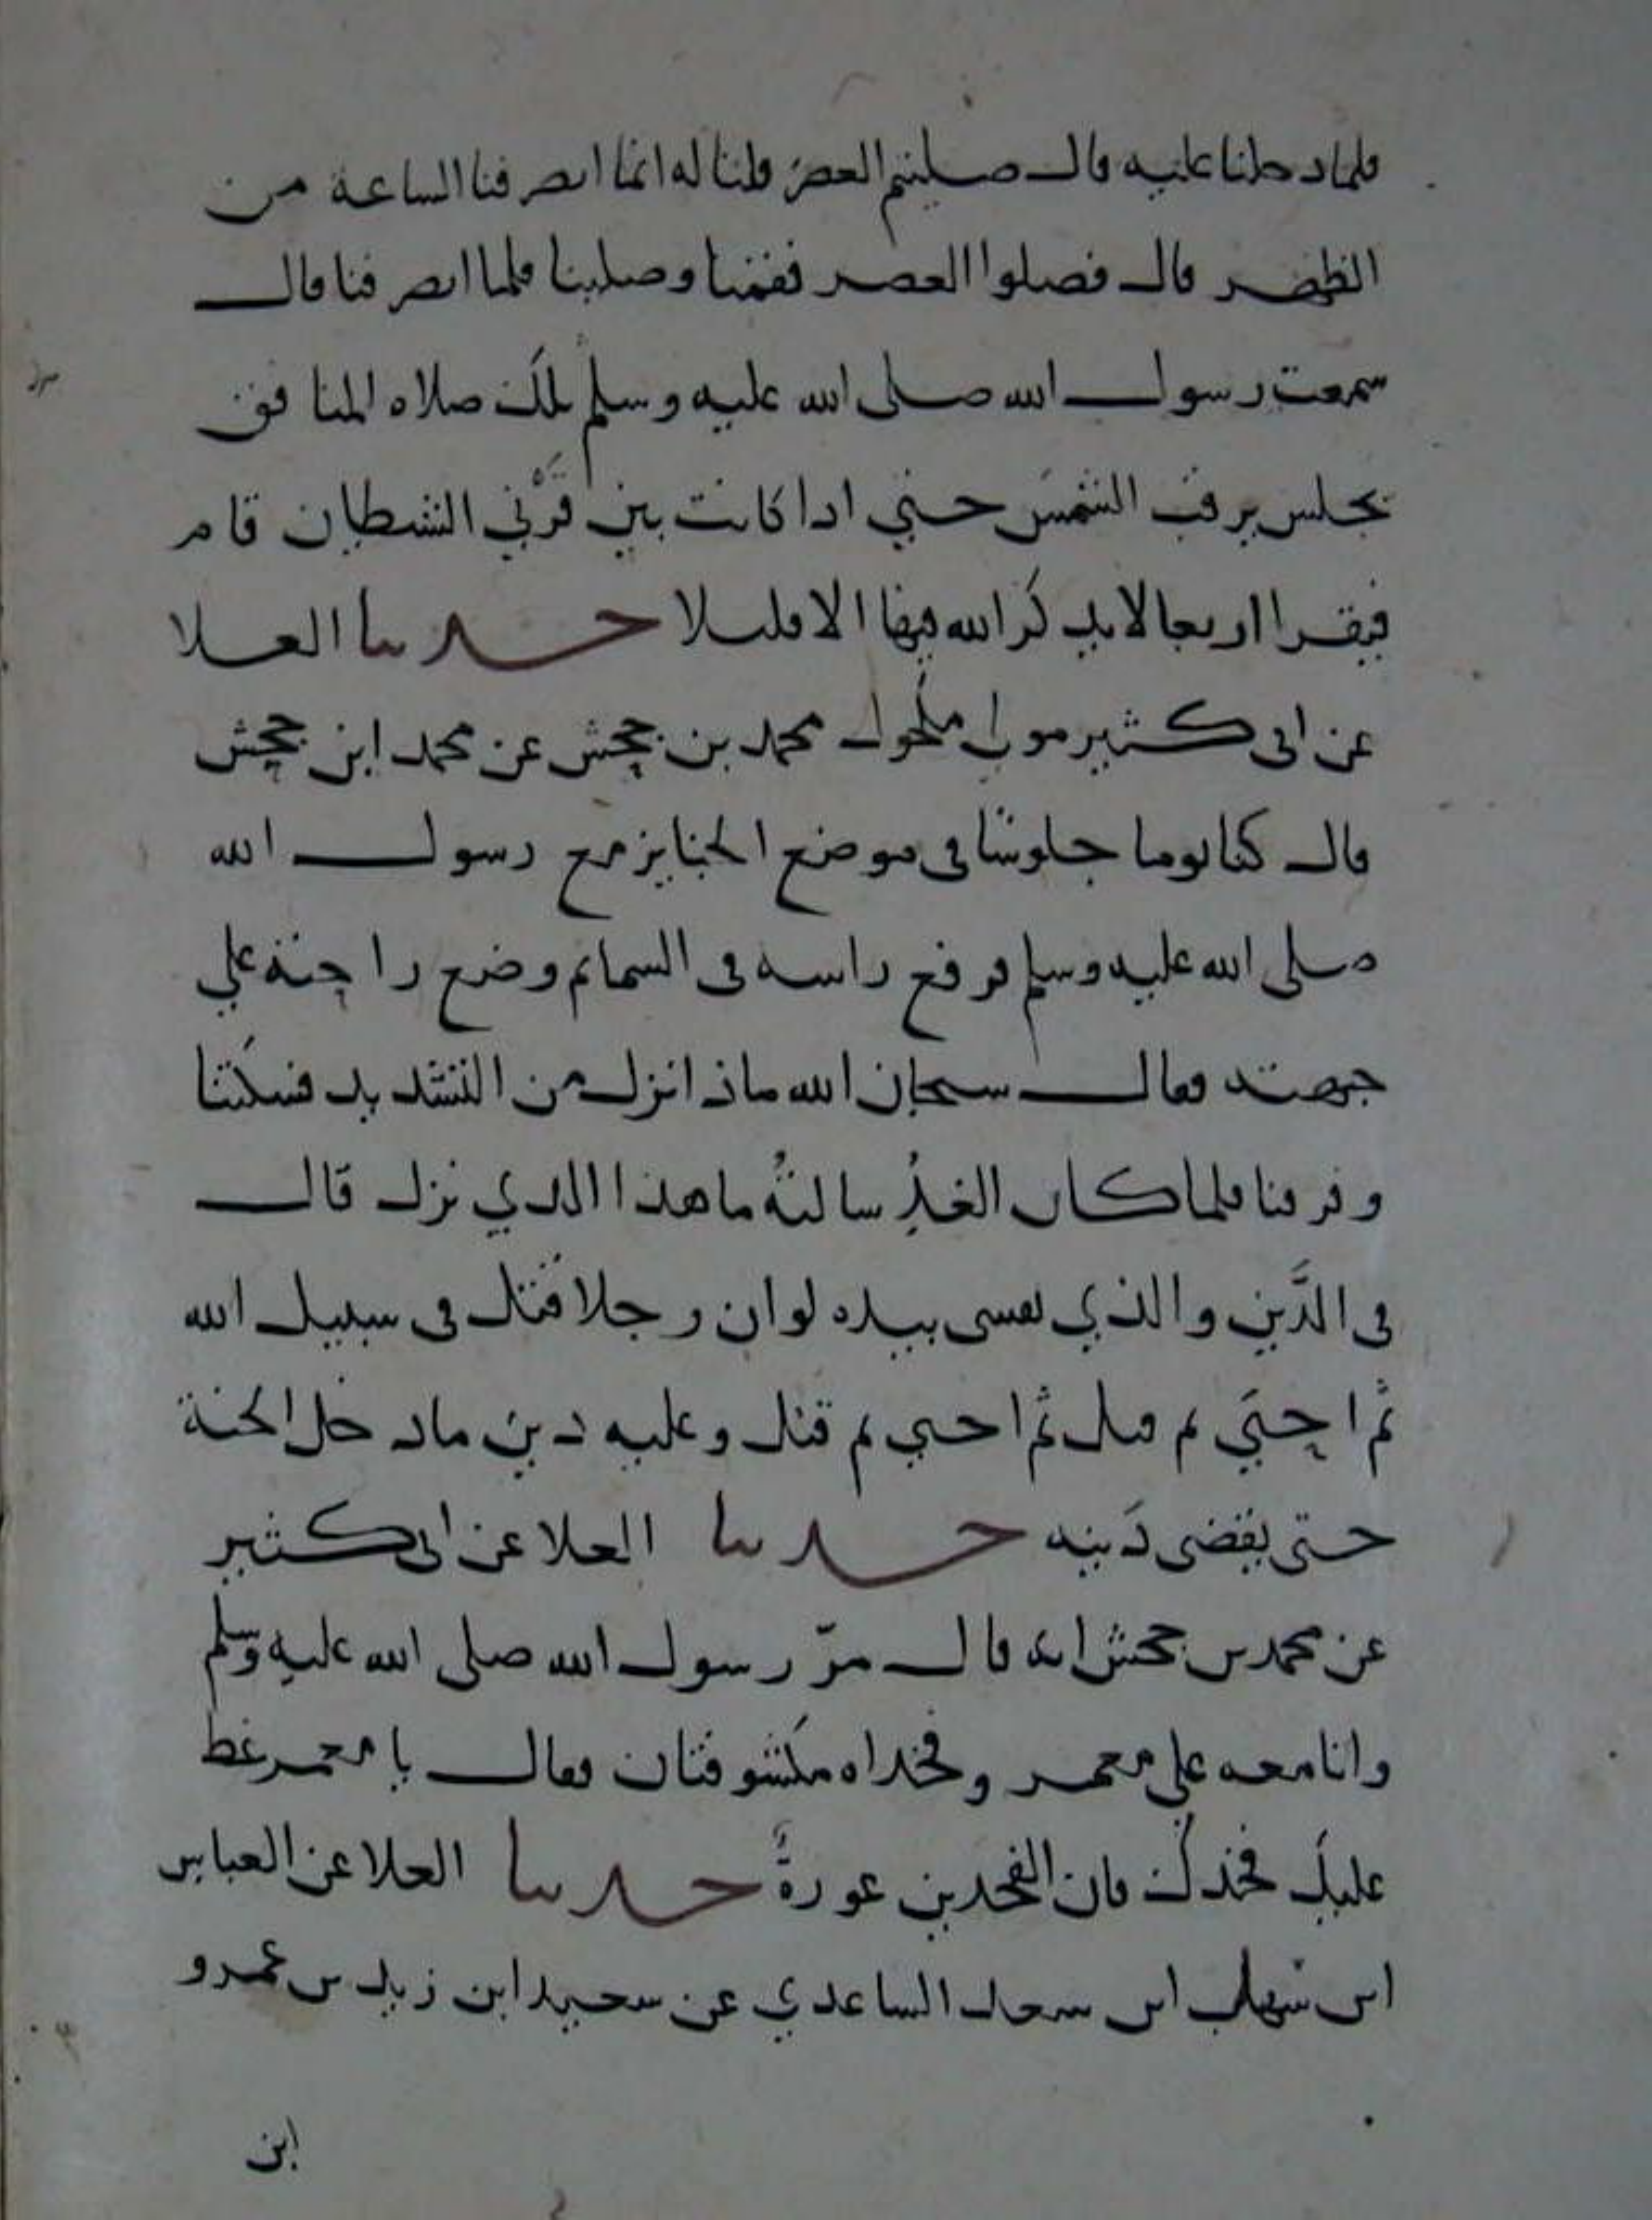 فلما دخلنا عليه قال صليتم العصر قلنا له انما انصرفنا الساعة من
الظهر قال فصلوا العصر فقمنا وصلينا فلما انصرفنا قال
سمعت رسول الله صلى الله عليه وسلم تلك صلاه المنافق
يجلس يرقب الشمس حتي اذا كانت بين قَرْني الشيطان قام
فيقرا اربعا لا يذكر الله فيها الا قليلا حدثنا العلا
عن ابى كثير مولى محمد بن جحش عن محمد ابن جحش
قال كنا يوما جلوسا فى موضع الجنايز مع رسول الله
صلى الله عليه وسلم فرفع راسه فى السما ثم وضع راحته علي
جبهته فقال سبحان الله ماذا نزل من التشديد فسكتنا
وفرقنا فلما كان الغدُ سالتهُ ما هذا الذي نزل قال
فى الدَّين والذي نفسى بيده لو ان رجلا قتل فى سبيل الله
ثم احيي ثم قتل ثم احيي ثم قتل وعليه دين ما دخل الجنة
حتى يقضى دَينه حدثنا العلا عن ابى كثير
عن محمد بن جحش انه قال مرّ رسول الله صلى الله عليه وسلم
وانا معه علي معمر وفخداه مكشوفتان فقال يا معمر غط
عليك فخذك فان الفخدين عورةٌ حدثنا العلا عن العباس
ابن سهل ابن سعد الساعدي عن سعيد ابن زيد بن عمرو
ابن